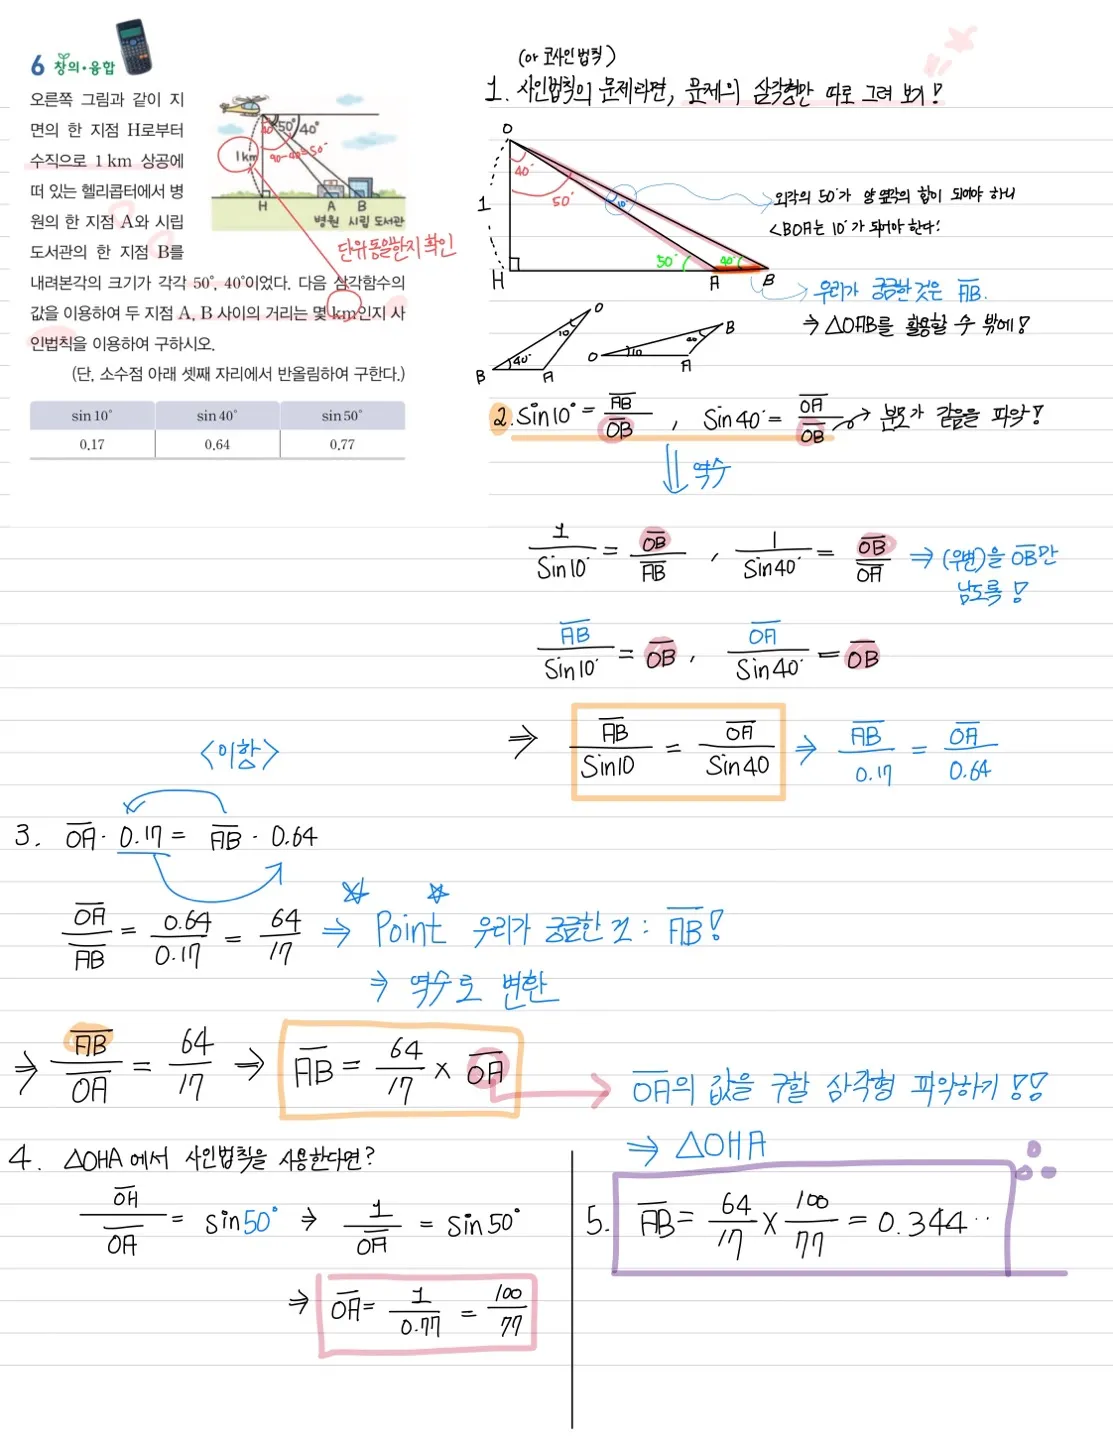 6 창의·융합
오른쪽 그림과 같이 지
면의 한 지점 H로부터
수직으로 1 km 상공에
떠 있는 헬리콥터에서 병
원의 한 지점 A와 시립
도서관의 한 지점 B를
내려본각의 크기가 각각 50°, 40°이었다. 다음 삼각함수의
값을 이용하여 두 지점 A, B 사이의 거리는 몇 km인지 사
인법칙을 이용하여 구하시오.
(단, 소수점 아래 셋째 자리에서 반올림하여 구한다.)
40° 50° 40°
90-40=50°
1 km
H A B
병원 시립 도서관
단위 동일한지 확인
sin 10° sin 40° sin 50°
0.17 0.64 0.77
(or 코사인법칙)
1. 사인법칙의 문제라면, 문제의 삼각형만 따로 그려 보기!
O
40°
50°
10°
1
50° 40°
H A B
외각의 50°가 양 옆각의 합이 되어야 하니
<BOA는 10°가 되어야 한다!
우리가 궁금한 것은 AB.
⇒ △OAB를 활용할 수 밖에!
O 10 40° B A
O 10 40 B A
2. Sin10° = AB/OB , Sin40° = OA/OB → 분모가 같음을 파악!
⇓ 역수
1/Sin10° = OB/AB , 1/Sin40° = OB/OA ⇒ (우변)을 OB만
남도록!
AB/Sin10° = OB, OA/Sin40° = OB
⇒ AB/Sin10 = OA/Sin40 ⇒ AB/0.17 = OA/0.64
<이항>
3. OA · 0.17 = AB · 0.64
OA/AB = 0.64/0.17 = 64/17 ⇒ Point 우리가 궁금한 것 : AB!
⇒ 역수로 변환
⇒ AB/OA = 64/17 ⇒ AB = 64/17 × OA
OA의 값을 구할 삼각형 파악하기!!
⇒ △OHA
4. △OHA에서 사인법칙을 사용한다면?
OH/OA = sin50° ⇒ 1/OA = sin50°
⇒ OA = 1/0.77 = 100/77
5. AB = 64/17 × 100/77 = 0.344··